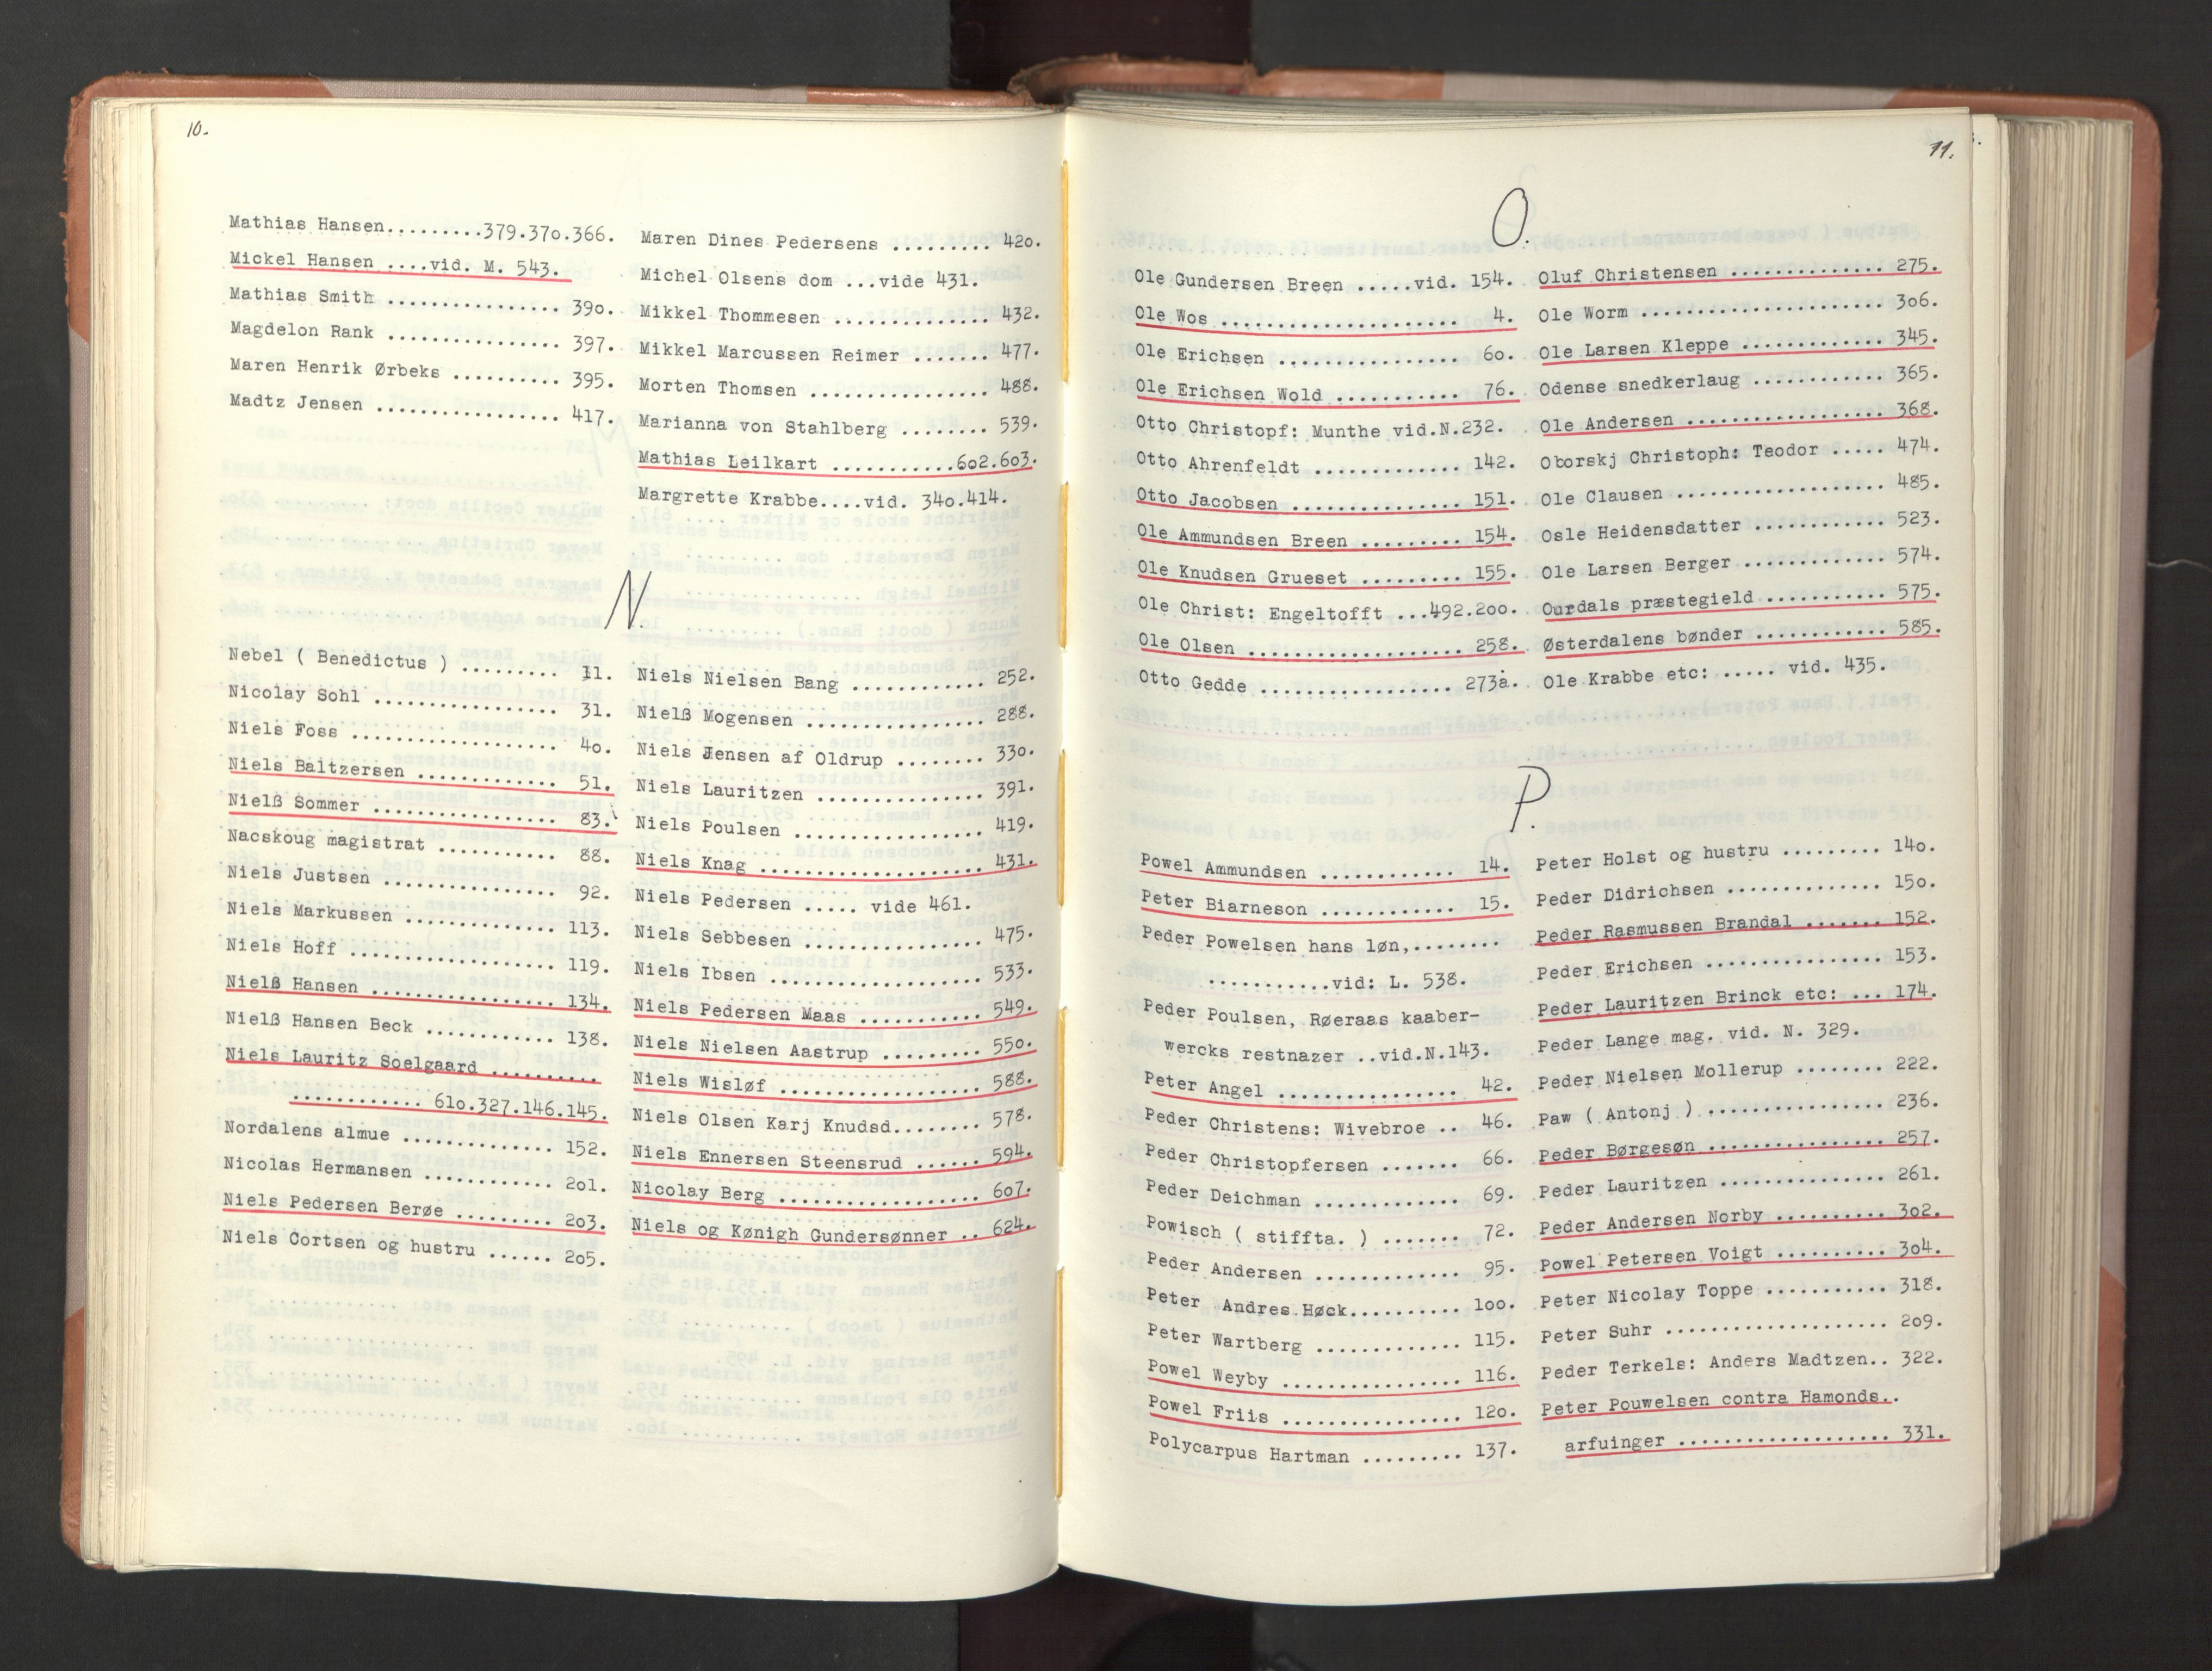 10.
Mathias Hansen.........379.37o.366.
Mickel Hansen ....vid. M. 543.
Mathias Smith ................ 39o.
Magdelon Rank ................ 397.
Maren Henrik Ørbeks .......... 395.
Madtz Jensen ................. 417.
Maren Dines Pedersens ......... 42o.
Michel Olsens dom ...vide 431.
Mikkel Thommesen .............. 432.
Mikkel Marcussen Reimer ....... 477.
Morten Thomsen ................ 488.
Marianna von Stahlberg ........ 539.
Mathias Leilkart ...........6o2.6o3.
Margrette Krabbe....vid. 34o.414.
N.
Nebel ( Benedictus ) ......... 11.
Nicolay Sohl ................. 31.
Niels Foss ................... 4o.
Niels Baltzersen ............. 51.
Nielß Sommer ................. 83.
Nacskoug magistrat ........... 88.
Niels Justsen ................ 92.
Niels Markussen .............. 113.
Niels Hoff ................... 119.
Nielß Hansen ................. 134.
Nielß Hansen Beck ............ 138.
Niels Lauritz Soelgaard ..........
............ 61o.327.146.145.
Nordalens almue .............. 152.
Nicolas Hermansen ............ 2o1.
Niels Pedersen Berøe ......... 2o3.
Niels Cortsen og hustru ...... 2o5.
Niels Nielsen Bang ............ 252.
Nielß Mogensen ................ 288.
Niels Jensen af Oldrup ........ 33o.
Niels Lauritzen ............... 391.
Niels Poulsen ................. 419.
Niels Knag .................... 431.
Niels Pedersen ..... vide 461.
Niels Sebbesen ................ 475.
Niels Ibsen ................... 533.
Niels Pedersen Maas ........... 549.
Niels Nielsen Aastrup ......... 55o.
Niels Wisløf .................. 588.
Niels Olsen Karj Knudsd........ 578.
Niels Ennersen Steensrud ...... 594.
Nicolay Berg .................. 6o7.
Niels og Kønigh Gundersønner .. 624.
11.
O.
Ole Gundersen Breen .....vid. 154.
Ole Wos ...................... 4.
Ole Erichsen ................ 6o.
Ole Erichsen Wold ........... 76.
Otto Christopf: Munthe vid.N.232.
Otto Ahrenfeldt ............. 142.
Otto Jacobsen ............... 151.
Ole Ammundsen Breen ......... 154.
Ole Knudsen Grueset ......... 155.
Ole Christ: Engeltofft ...492.2oo.
Ole Olsen ................... 258.
Otto Gedde ................. 273a.
Oluf Christensen .............. 275.
Ole Worm ...................... 3o6.
Ole Larsen Kleppe ............. 345.
Odense snedkerlaug ............ 365.
Ole Andersen .................. 368.
Oborskj Christoph: Teodor ..... 474.
Ole Clausen ................... 485.
Osle Heidensdatter ............ 523.
Ole Larsen Berger ............. 574.
Ourdals præstegield ........... 575.
Østerdalens bønder ............ 585.
Ole Krabbe etc: ..... vid. 435.
P.
Powel Ammundsen ............ 14.
Peter Biarneson ............ 15.
Peder Powelsen hans løn,........
...........vid: L. 538.
Peder Poulsen, Røeraas kaaber-
wercks restnazer ..vid.N.143.
Peter Angel ................ 42.
Peder Christens: Wivebroe .. 46.
Peder Christopfersen ....... 66.
Peder Deichman ............. 69.
Powisch ( stiffta. ) ....... 72.
Peder Andersen ............. 95.
Peter Andres Høck.......... 1oo.
Peter Wartberg ............. 115.
Powel Weyby ................ 116.
Powel Friis ................ 12o.
Polycarpus Hartman ......... 137.
Peter Holst og hustru ......... 14o.
Peder Didrichsen .............. 15o.
Peder Rasmussen Brandal ....... 152.
Peder Erichsen ................ 153.
Peder Lauritzen Brinck etc: ... 174.
Peder Lange mag. vid. N. 329.
Peder Nielsen Mollerup ........ 222.
Paw ( Antonj ) ................ 236.
Peder Børgesøn ................ 257.
Peder Lauritzen ............... 261.
Peder Andersen Norby .......... 3o2.
Powel Petersen Voigt .......... 3o4.
Peter Nicolay Toppe ........... 318.
Peter Suhr .................... 2o9.
Peder Terkels: Anders Madtzen.. 322.
Peter Pouwelsen contra Hamonds..
arfuinger ................... 331.